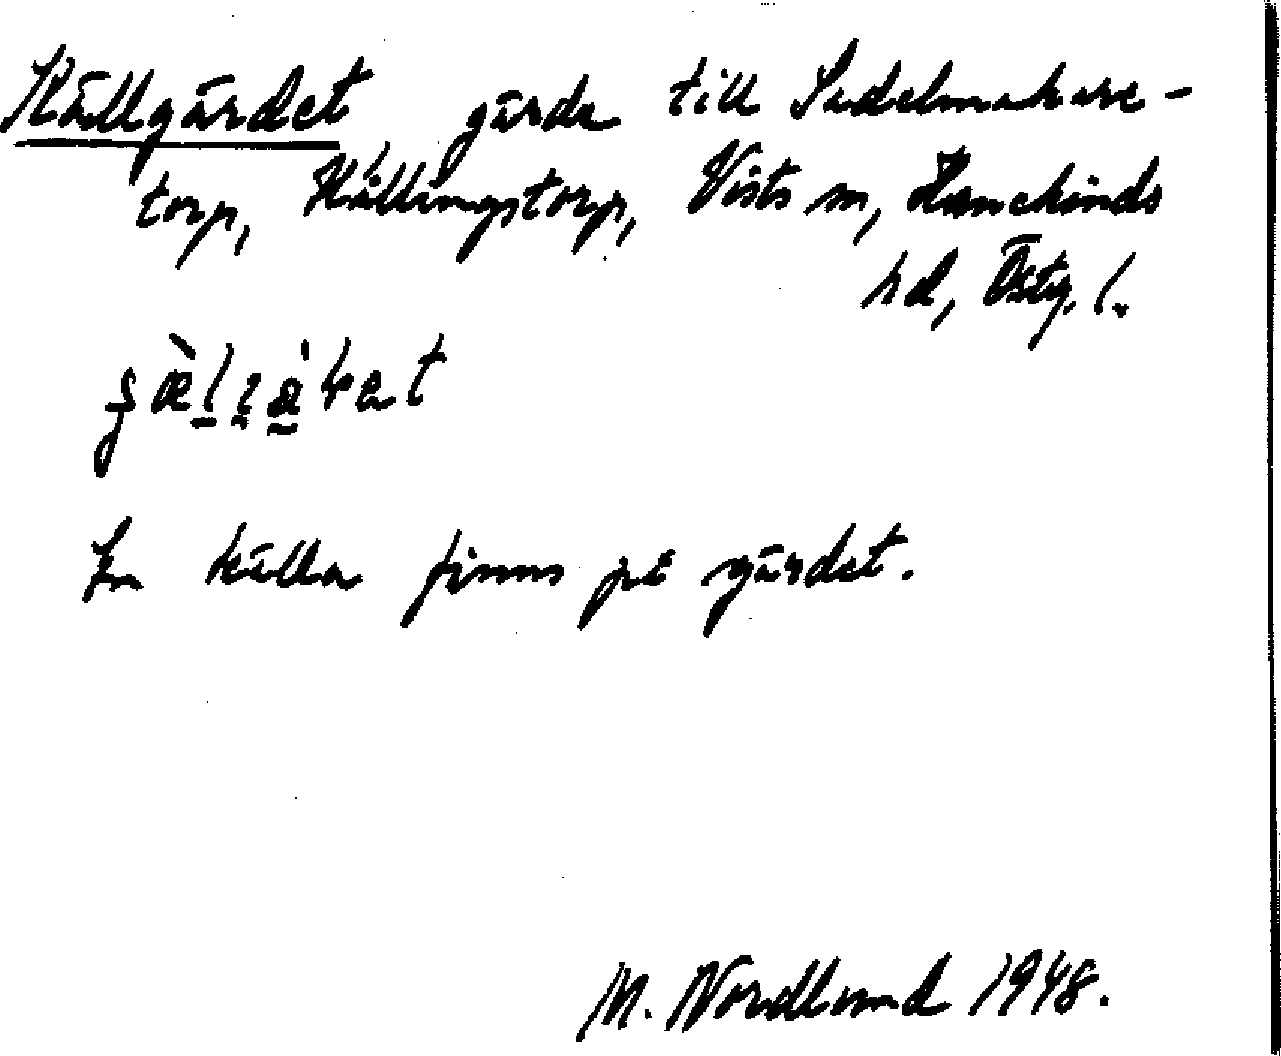 Källgärdet gärde till Sadelmakare-
torp, Hällingstorp, Vists sn, Hanekinds
hd, Östg. l.
En källa finns på gärdet.
M. Nordlund 1948.